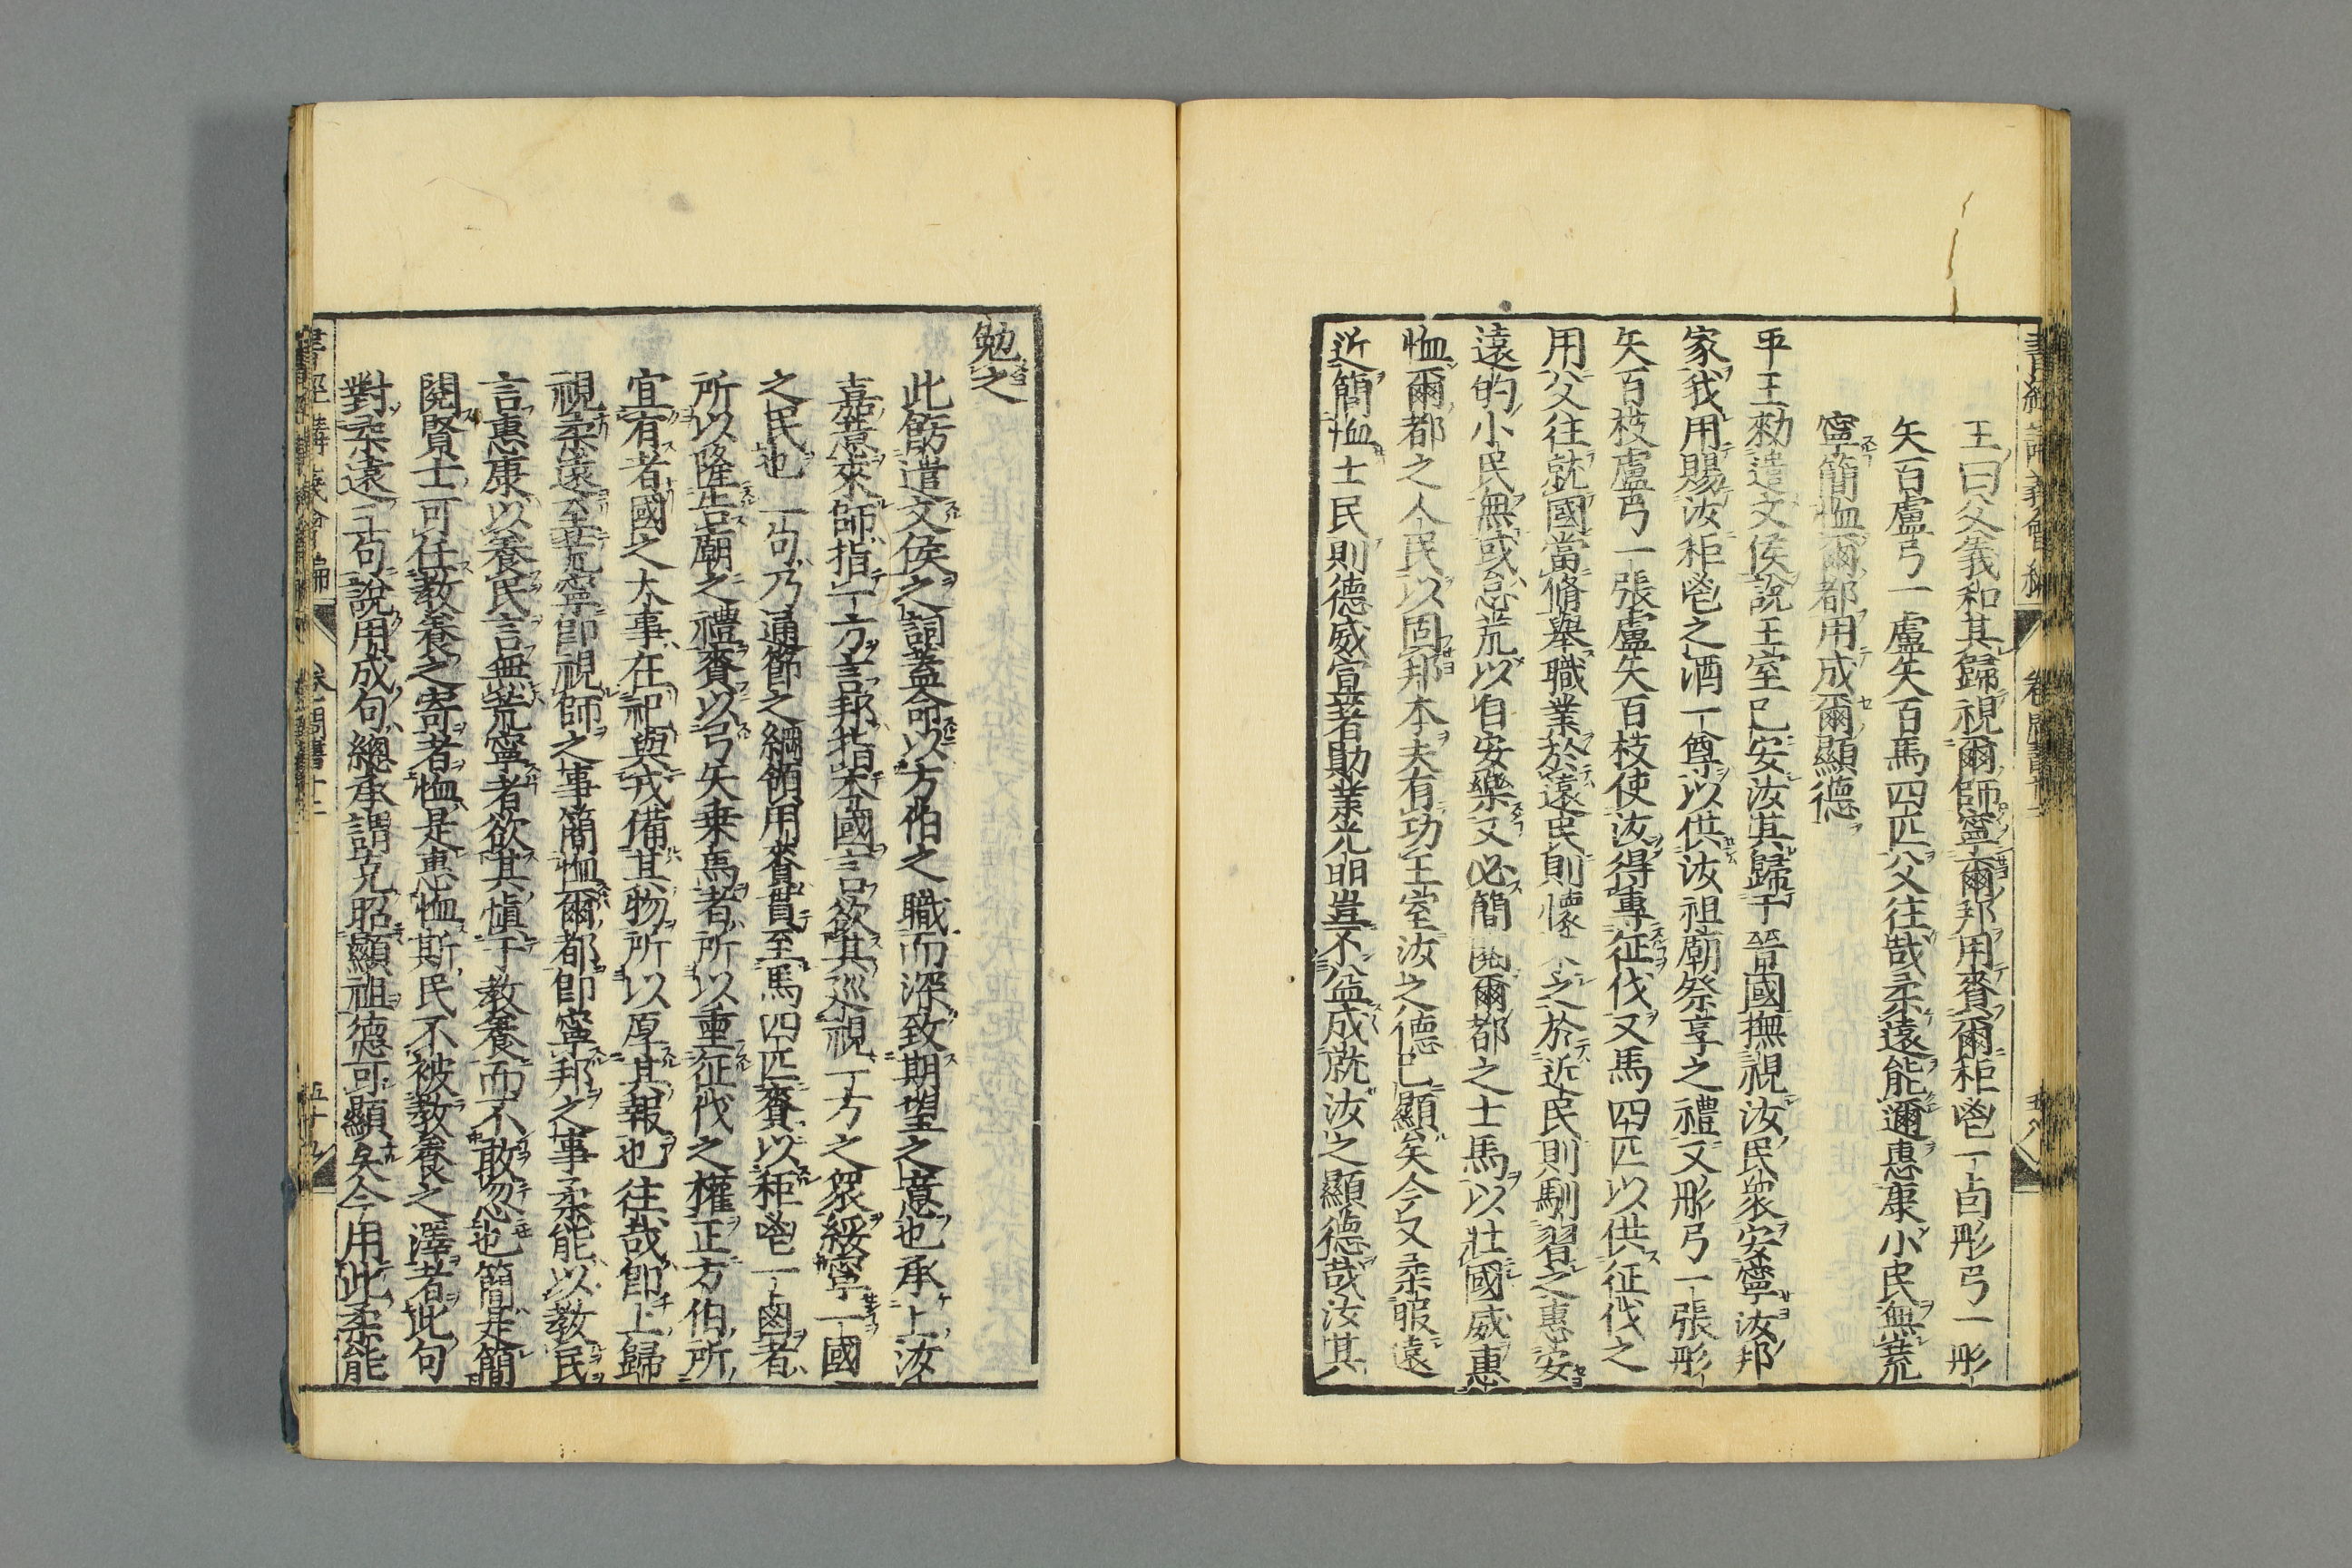 王曰父義和其歸視爾師寧爾邦用賚爾秬鬯一卣彤弓一彤
矢百盧弓一盧矢百馬四匹父往哉柔遠能邇惠康小民無荒
寧簡恤爾都用成爾顯德
平王勑遣文侯說王室已安汝其歸于晉國撫視汝民衆安寧汝邦
家我用賜汝秬鬯之酒一尊以供汝祖廟祭享之禮又彤弓一張彤
矢百枝盧弓一張盧矢百枝使汝得專征伐又馬四匹以供征伐之
用父往就國當脩舉職業於遠民則懷之於近民則馴習之惠安
遠的小民無或怠荒以自安樂又必簡閱爾都之士馬以壯國威惠
恤爾都之人民以固邦本夫有功王室汝之德已顯矣今又柔服遠
近簡恤士民則德威宣著勛業光明豈不益成就汝之顯德哉汝其
勉之
此節遣文侯之詞蓋命以方伯之職而深致期望之意也承上汝
嘉意來師指一方言邦指本國言欲其巡視一方之衆綏寧一國
之民也一句乃通節之綱領用賚貫至馬四匹賚以秬鬯一卣者
所以隆告廟之禮賚以弓矢乗馬者所以重征伐之權正方伯所
宜有者國之大事在祀與戎備其物所以厚其報也往哉即上歸
視柔遠至荒寧即視師之事簡恤爾都即寧邦之事柔能以教民
言惠康以養民言無荒寧者欲其慎于教養而不敢忽也簡是簡
閱賢士可任教養之寄者恤是惠恤斯民不被教養之澤者此句
對柔遠三句說用成句總承謂克昭顯祖德可顯矣今用此柔能
書經講義會編